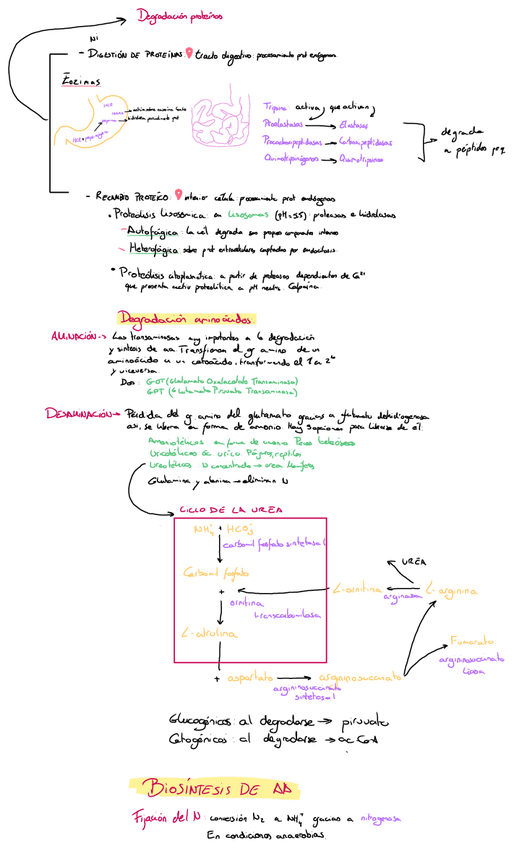 Degradación proteínas
NI
- DIGESTIÓN DE PROTEÍNAS: tracto digestivo: procesamiento prot exógenas.
Enzimas
HCl
HCl + pepsinógeno
Tripsina activa y que activan
Proelastasas → Elastasas
Procarboxipeptidasas → Carboxipeptidasas
Quimotripsinógenos → Quimotripsina
degrada
a péptidos peq.
- RECAMBIO PROTEICO: interior célula: procesamiento prot endógenas
• Proteólisis lisosómica: en lisosomas (pH=5.5): proteasas e hidrolasas
- Autofágica: la cél degrada sus propios componentes internos
- Heterofágica: sobre prot extracelulares captadas por endocitosis.
• Proteólisis citoplasmática: a partir de proteasas dependientes de Ca2+
que presenta activ proteolítica a pH neutro. Calpaína.
Degradación aminoácidos
AMINACIÓN → Las transaminasas muy importantes a la degradación
y síntesis de aa. Transfieren el gr amino de un
aminoácido a un cetoácido, transformando el 1 en 2
y viceversa.
Dos: GOT (Glutamato Oxalacetato Transaminasa)
GPT (Glutamato Piruvato Transaminasa)
DESAMINACIÓN → Pérdida del gr amino del glutamato gracias a glutamato deshidrogenasa
así, se libera en forma de amonio. Hay 3 opciones para librarse de él:
Amoniotélicos: en forma de amonio Peces teleósteos
Uricotélicos: ác urico Pájaros, reptiles
Ureotélicos N concentrado → urea Mamíferos
Glutamina y alanina → eliminan N
CICLO DE LA UREA
NH4+ + HCO3-
carbamil fosfato sintetasa I
Carbamil fosfato
+
ornitina
transcarbamilasa
L-citrulina
L-ornitina
arginasa
UREA
L-arginina
Fumarato
argininosuccinato
liasa
+ aspartato → argininosuccinato
argininosuccinato
sintetasa I
Glucogénicos: al degradarse → piruvato
Cetogénicos: al degradarse → ac CoA
BIOSÍNTESIS DE AA
Fijación del N: conversión N2 a NH4+ gracias a nitrogenasa
En condiciones anaerobias.